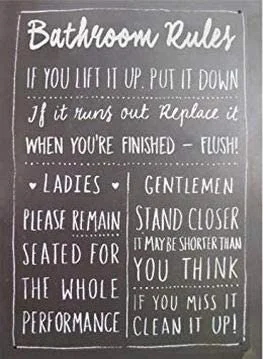 Bathroom Rules
IF YOU LIFT IT UP, PUT IT DOWN
If it runs out Replace it
WHEN YOU'RE FINISHED – FLUSH!
♥ LADIES ♥
PLEASE REMAIN
SEATED FOR
THE WHOLE
PERFORMANCE
GENTLEMEN
STAND CLOSER
IT MAY BE SHORTER THAN
YOU THINK
IF YOU MISS IT
CLEAN IT UP!